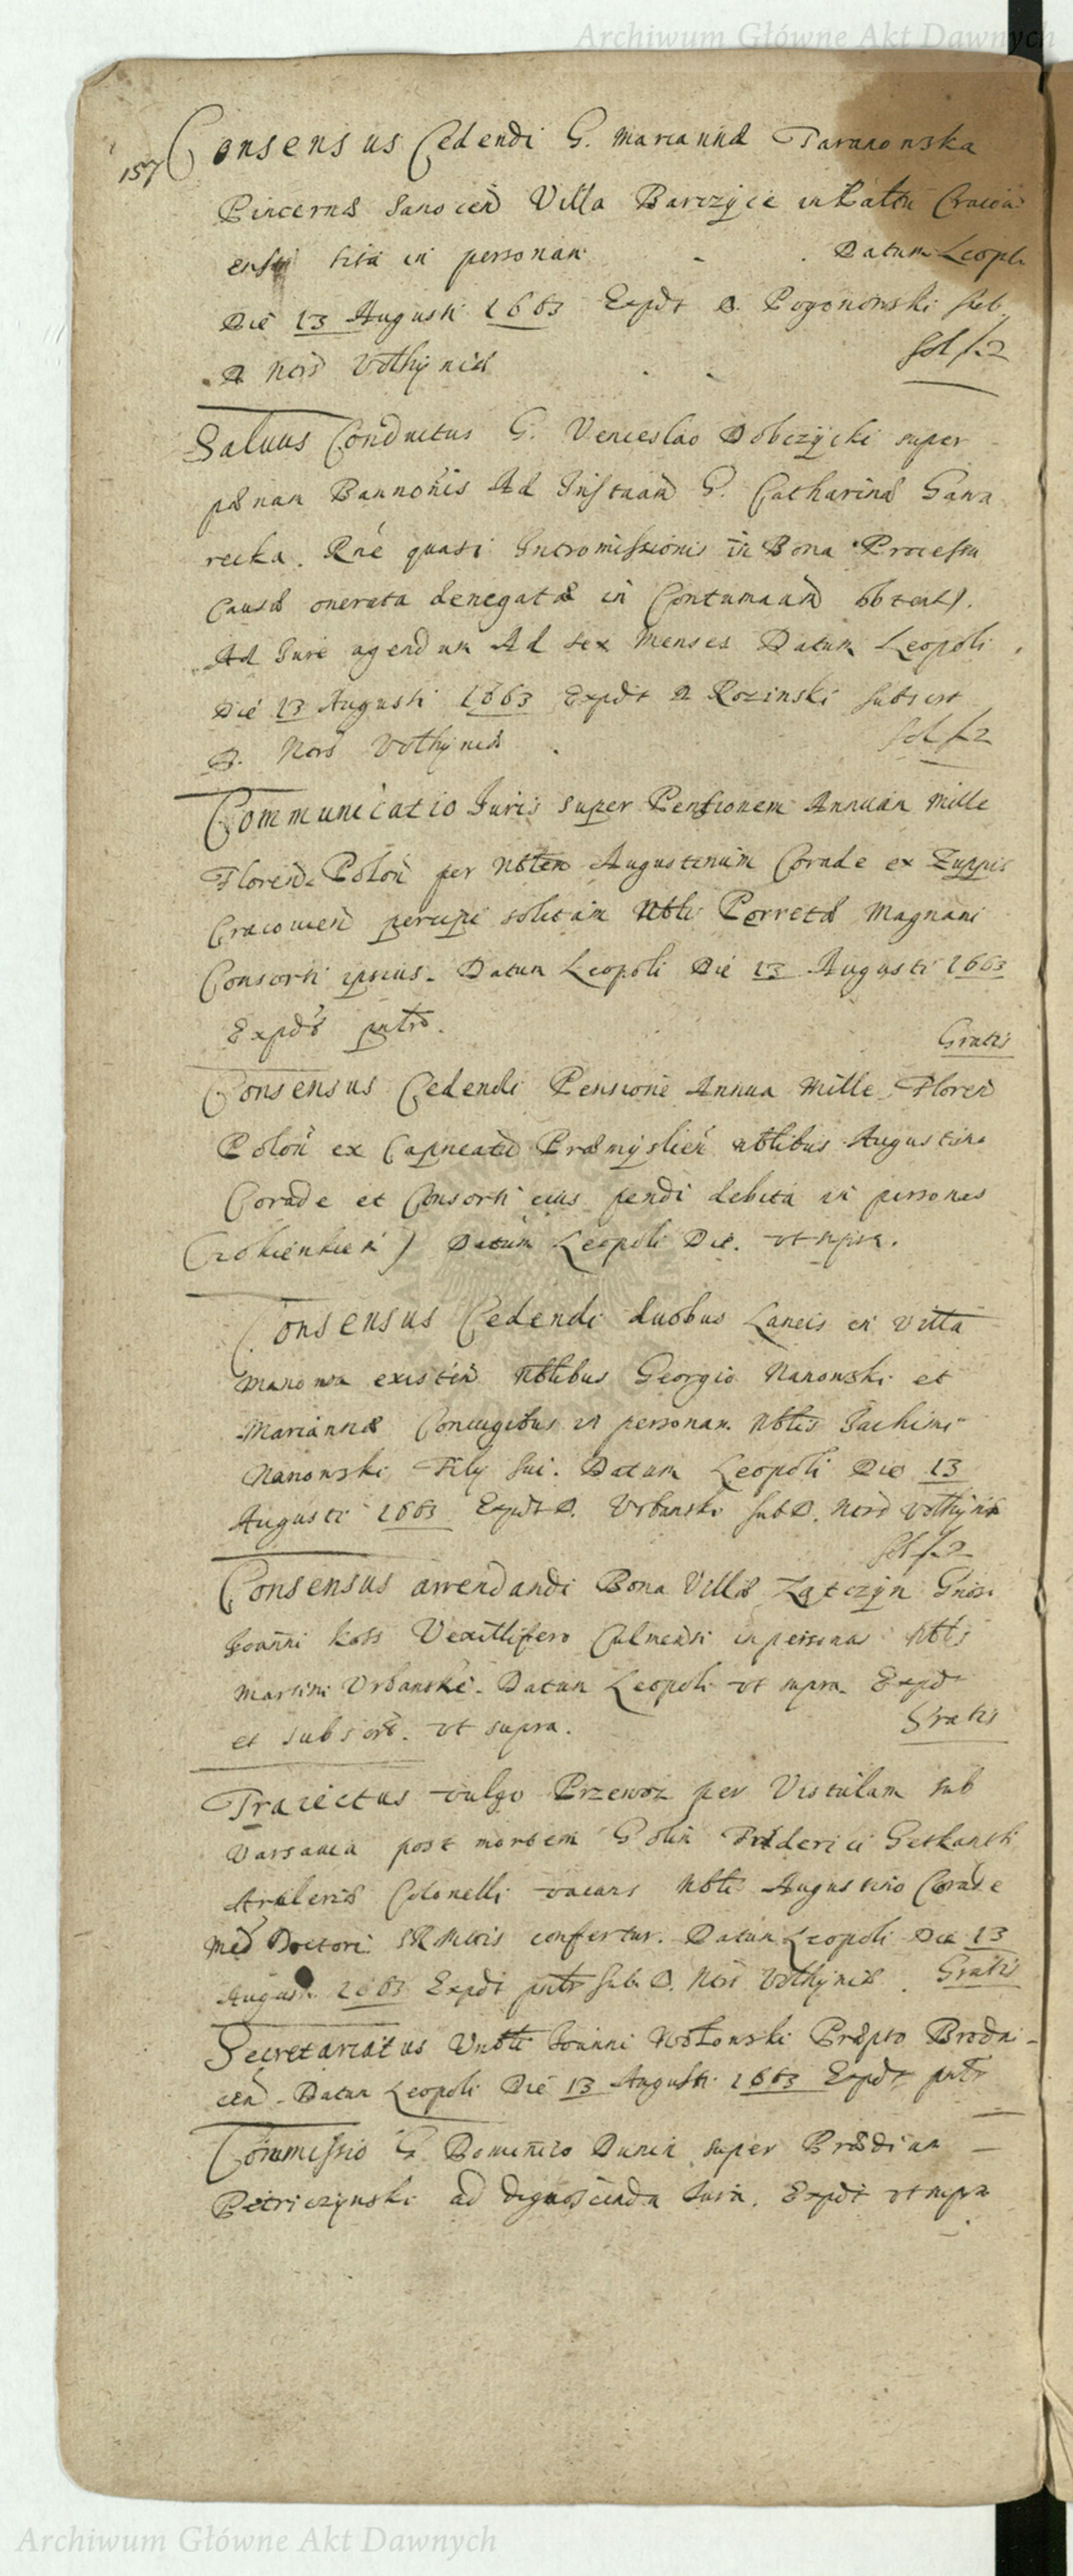 Archiwum Główne Akt Dawnych
157 Consensus Cedendi G. Marianna Taranowska
Pincerna Sanocen Villa Barczyce in Pattu Cracoui
ensi sita in personam Datum Leopli
Die 13 Augusti 1663 Expdt D. Pogonowski sub
D Nors Volhyniæ sol f. 2
Saluus Conductus G. Venceslao Dobczycki super
pænam Bannonis Ad Instaam G. Catharinæ Gawa
recka. Rne quasi Intromissionis in Bona Processu
Causæ onerata denegatæ in Contumaam obtent.
Ad Jure agendum Ad sex Menses Datum Leopoli
Die 13 Augusti 1663 Expdt D Rozinski subscrt
D. Nors Volhyniæ sol f. 2
Communicatio Juris super Pensionem Annuam Mille
Floren. Polon per Nblem Augustinum Corade ex Zuppis
Cracouien percipi solitam Nbli Porretæ Magnani
Consorti ipsius. Datum Leopoli Die 13 Augusti 1663
Expds pntro.
Gratis
Consensus Cedendi Pensione Annua Mille Floren
Polon ex Capneatu Præmyslien nblibus Augustino
Corade et Consorti eius pendi debita in personas
Datum Leopoli Die. vt supra.
Consensus Cedendi duobus Laneis in villa
Manowa existen Nblibus Georgio Nanowski et
Mariannæ Coniugibus in personam Nblis Jachimi
Nanowski Filij sui. Datum Leopoli Die 13
Augusti 1663 Expdt D. Vrbanski sub D. Nors Volhyniæ
sol f. 2
Consensus arrendandi Bona Villæ Zątczyn Gnosi
Joanni Koss Vexillifero Culmensi in persona Nblis
Martini Vrbanski. Datum Leopoli vt supra. Expdt
et subscrt. vt supra. Gratis
Traiectus vulgo Przewoz per Vistulam sub
Varsauia post mortem G olim Friderici Getkantth
Artileriæ Colonelli vacans Nbli Augustino Corade
Med Doctori SRMtis confertur. Datum Leopoli Die 13
August. 1663 Expdt pntr sub. D. Nors Volhyniæ. Gratis
Secretariatus Vnbli Joanni Wolowski Præpto Brodni-
cen. Datum Leopoli Die 13 Augusti 1663 Expdt pntr
Commissio G Dominico Dunin super Prædium
Petriczynski ad dignoscenda Jura. Expdt vt supra
Archiwum Główne Akt Dawnych